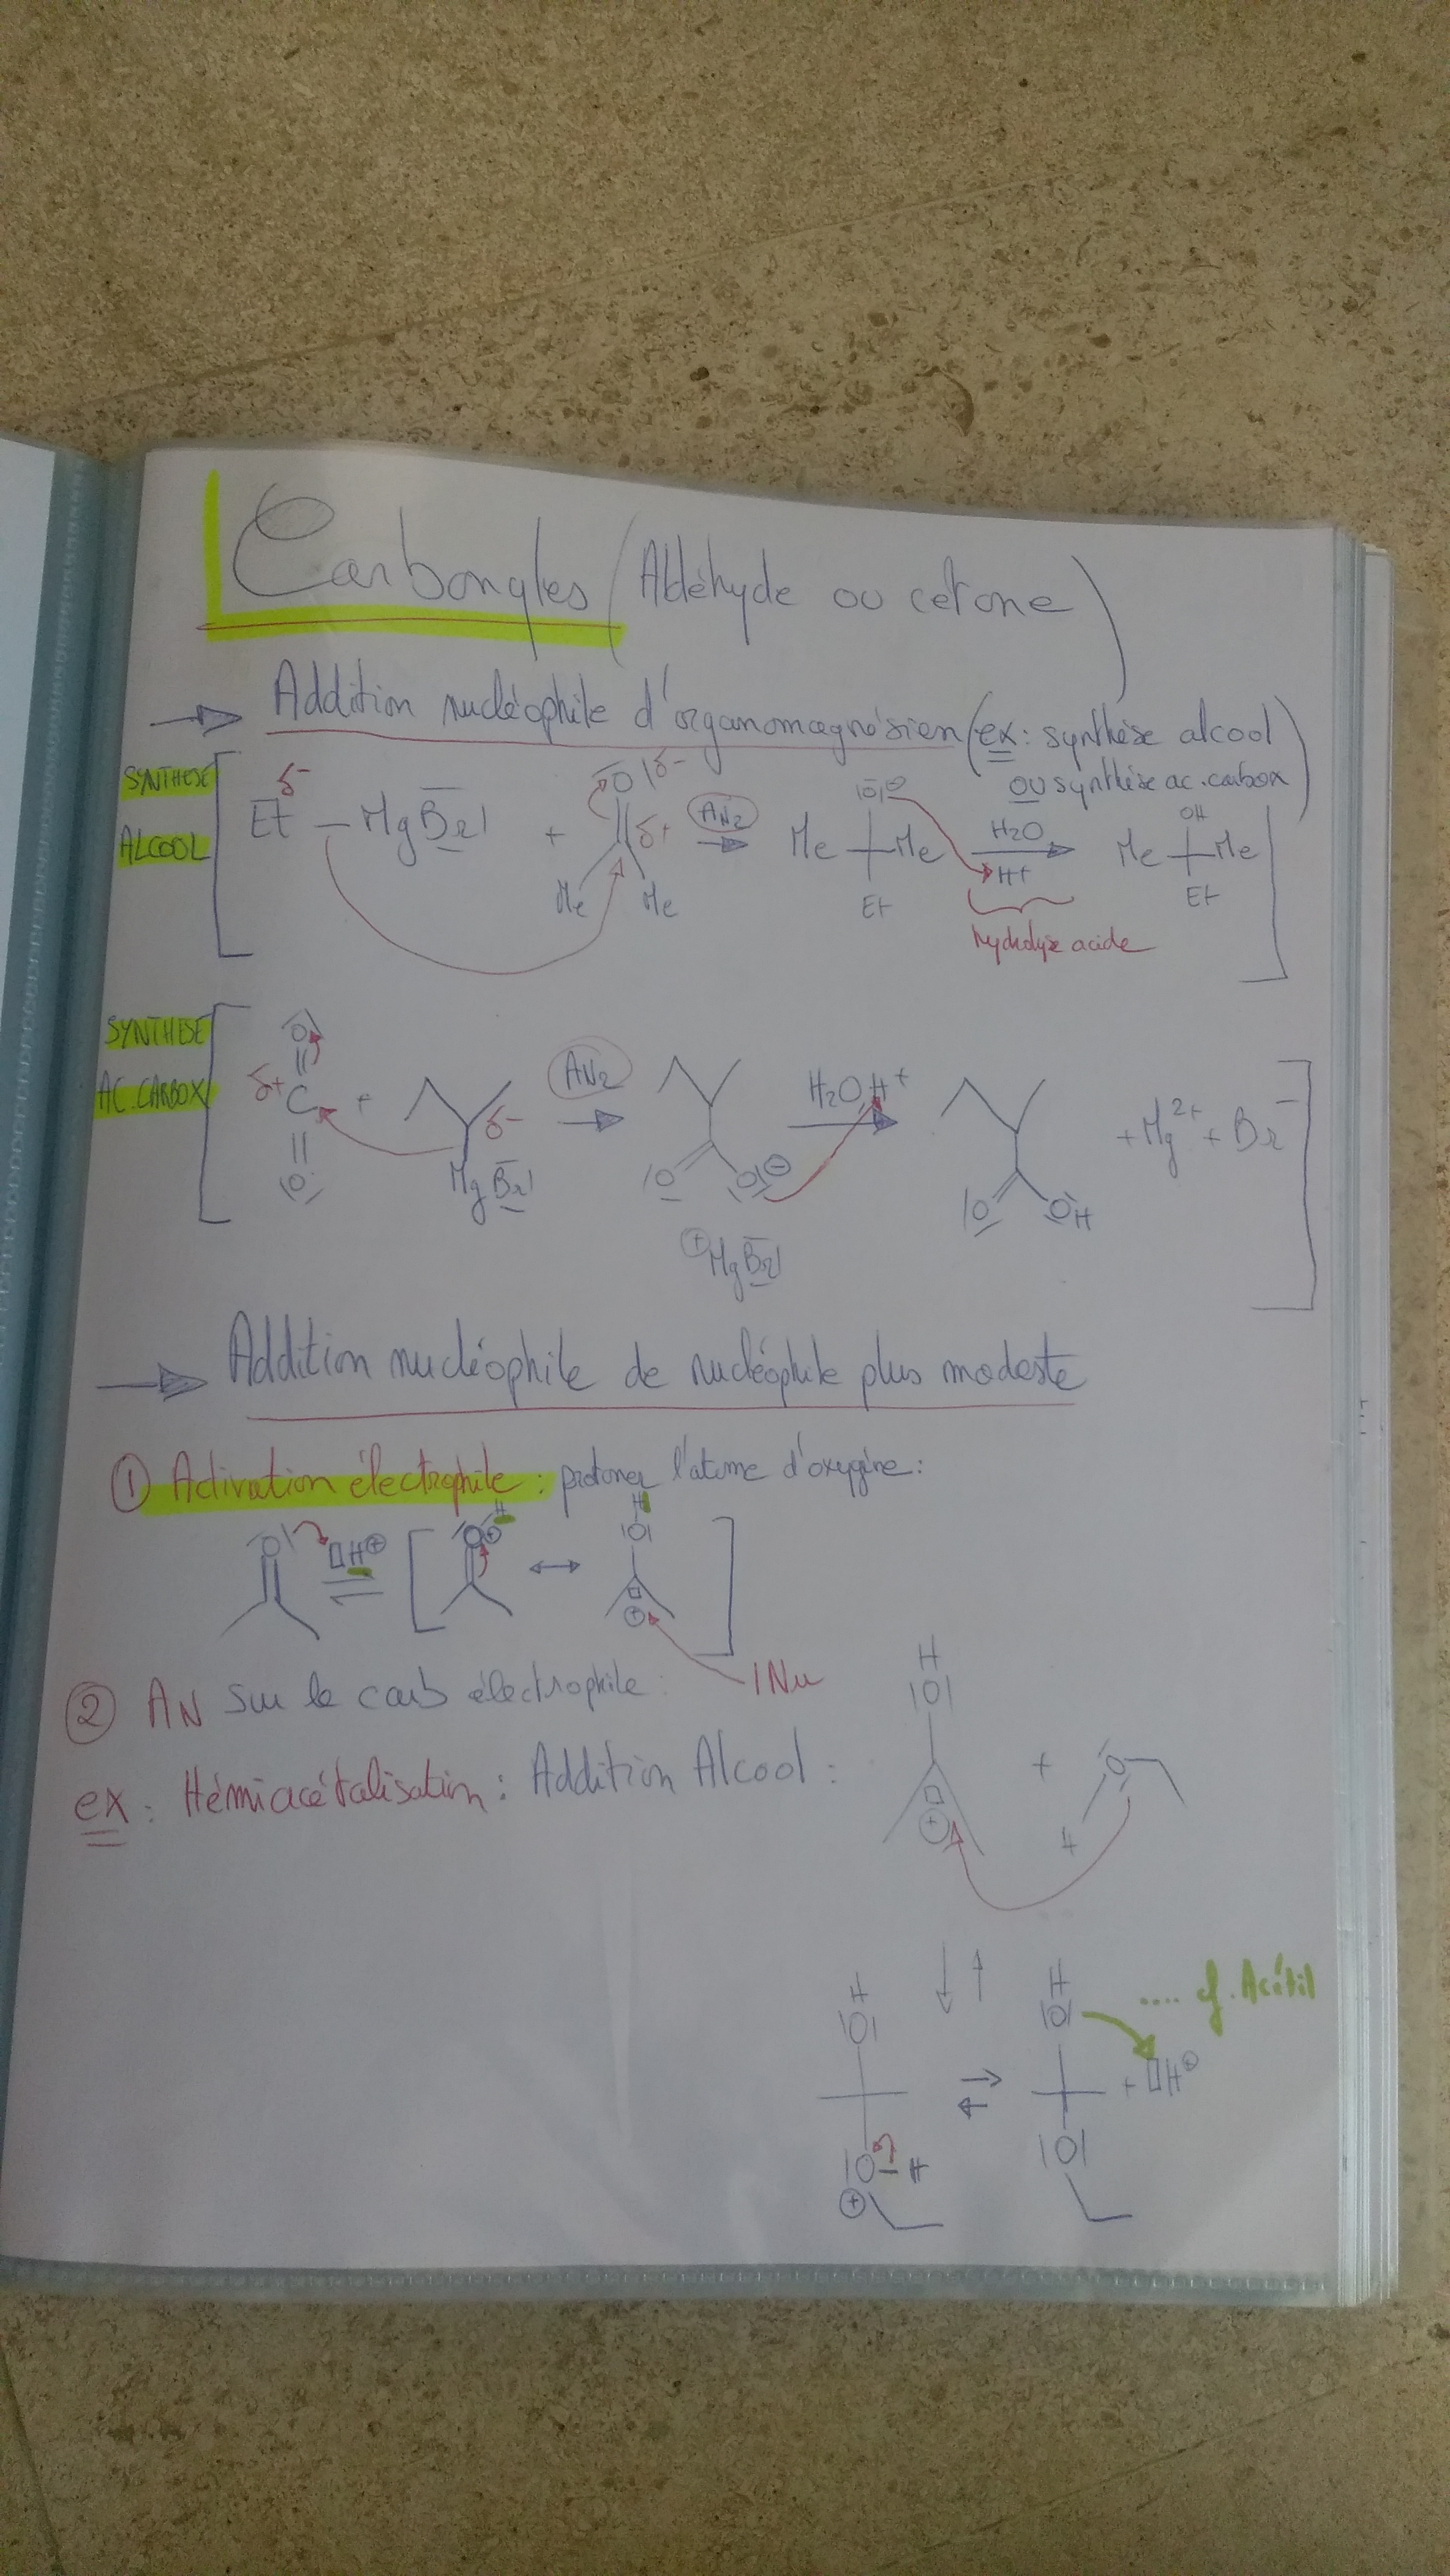 Carbonyles (Aldéhyde ou cétone)
Addition nucléophile d'organomagnésien (ex: synthèse alcool
ou synthèse ac. carbox)
SYNTHESE
ALCOOL
Et δ- — MgBr + O δ- δ+ Me Me AN2 O⊖ Me Me Et H2O H+ OH Me Me Et
hydrolyse acide
SYNTHESE
AC. CARBOX
O δ+ C O + δ- MgBr AN2 O O⊖ ⊕MgBr H2O, H+ O OH + Mg2+ + Br-
Addition nucléophile de nucléophile plus modeste
① Activation électrophile : protoner l'atome d'oxygène :
O H⊕ O⊕ H H O ⊕
② AN sur le carb électrophile : INu
ex : Hémiacétalisation : Addition Alcool :
H O ⊕ + O H
.... cf. Acétil
H O O H ⊕ H O O + H⊕